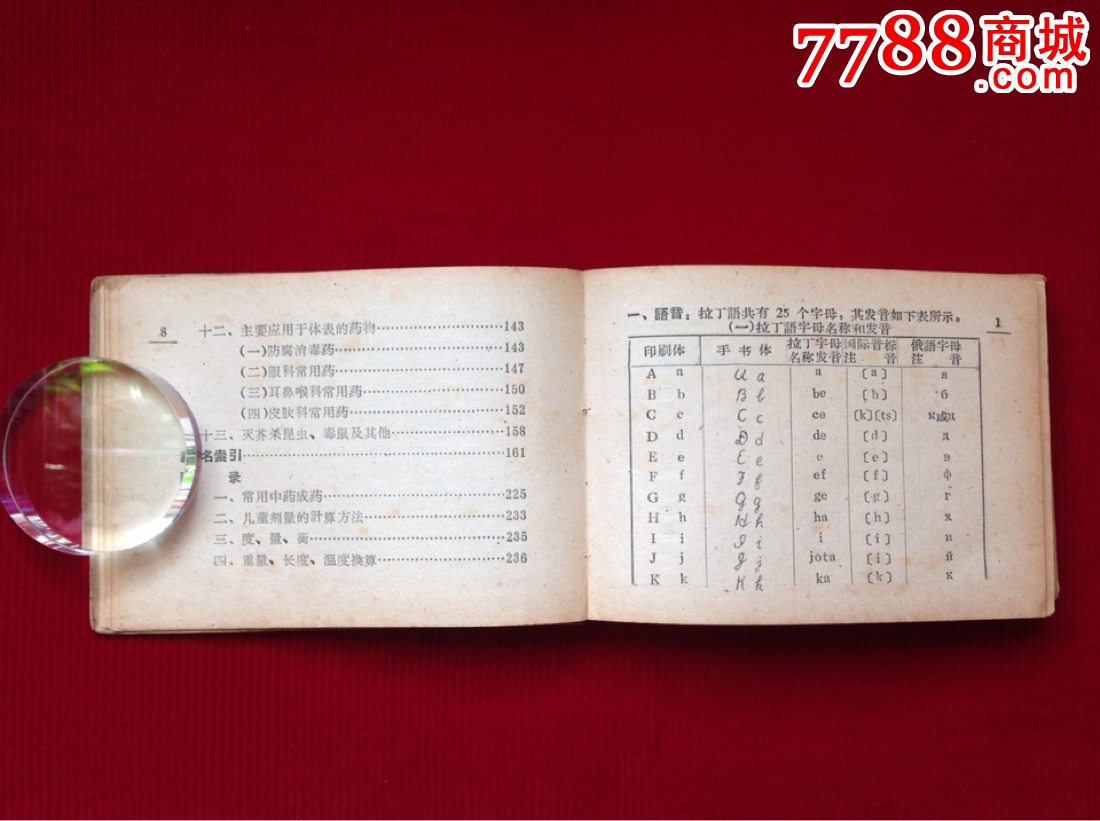 7788商城
.com
8
十二、主要应用于体表的药物………143
(一)防腐消毒药………143
(二)眼科常用药………147
(三)耳鼻喉科常用药………150
(四)皮肤科常用药………152
十三、灭芥杀昆虫、毒鼠及其他………158
名索引………161
录
一、常用中药成药………225
二、儿童剂量的计算方法………233
三、度、量、衡………235
四、重量、长度、溫度换算………236
1
一、語音：拉丁語共有 25 个字母，其发音如下表所示。
(一)拉丁語字母名称和发音
印刷体 手书体 拉丁字母名称发音 国际音标注音 俄語字母注音
A a A a a [a] а
B b B b be [b] б
C c C c ce [k][ts] к或ц
D d D d de [d] д
E e E e e [e] э
F f F f ef [f] ф
G g G g ge [g] г
H h H h ha [h] х
I i I i i [i] и
J j J j jota [i] й
K k K k ka [k] к